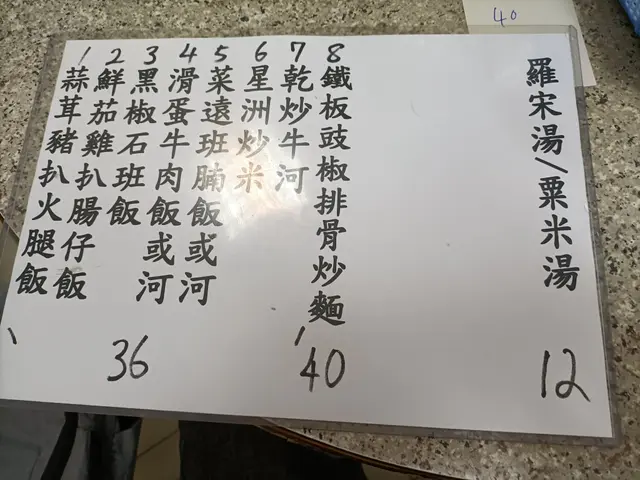 40
羅宋湯/粟米湯
12
8鐵板豉椒排骨炒麵
7乾炒牛河
6星洲炒米
5菜遠班腩飯或河
4滑蛋牛肉飯或河
3黑椒石班飯
2鮮茄雞扒腸仔飯
1蒜茸豬扒火腿飯
40
36